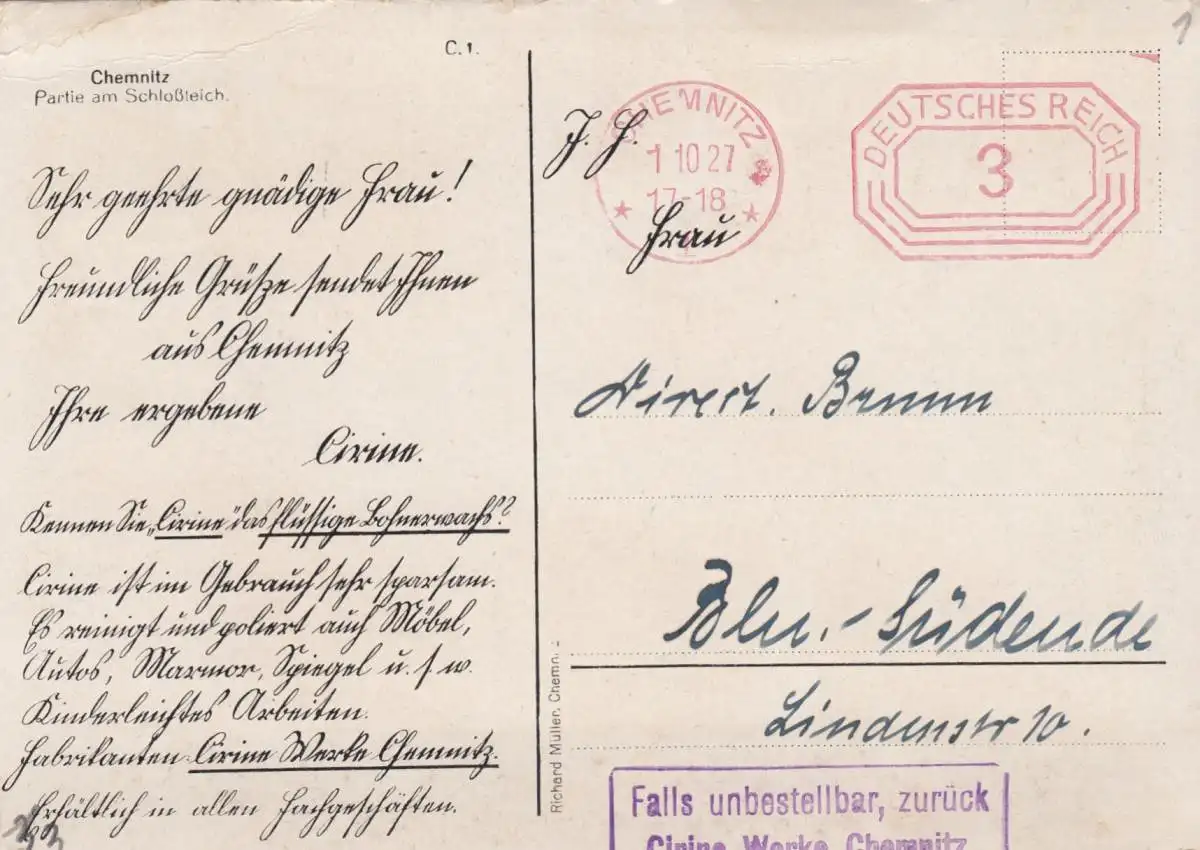 C.1.
1
Chemnitz
Partie am Schloßteich.
Sehr geehrte gnädige Frau!
Freundliche Grüße sendet Ihnen
aus Chemnitz
Ihre ergebene
Cirine.
Kennen Sie „Cirine" das flüssige Bohnerwachs?
Cirine ist im Gebrauch sehr sparsam.
Es reinigt und poliert auch Möbel,
Autos, Marmor, Spiegel u. s. w.
Kinderleichtes Arbeiten.
Fabrikanten: Cirine Werke Chemnitz.
Erhältlich in allen Fachgeschäften.
Richard Müller, Chemn.
CHEMNITZ
1 10 27
17-18
DEUTSCHES REICH
3
J. H.
Frau
Direct. Bemm
Bln.-Südende
Lindenstr 10.
Falls unbestellbar, zurück
Cirine Werke Chemnitz